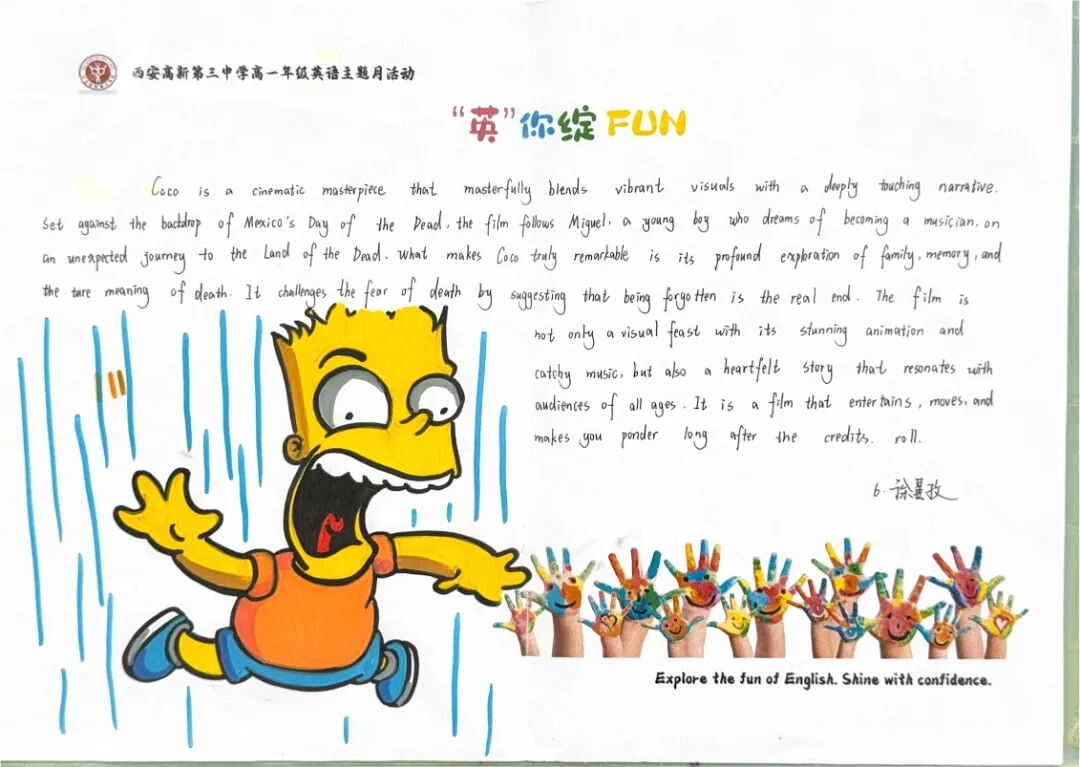 西安高新第三中学高一年级英语主题月活动
“英”你绽 FUN
Coco is a cinematic masterpiece that masterfully blends vibrant visuals with a deeply touching narrative.
Set against the backdrop of Mexico's Day of the Dead, the film follows Miguel, a young boy who dreams of becoming a musician, on
an unexpected journey to the Land of the Dead. What makes Coco truly remarkable is its profound exploration of family, memory, and
the ture meaning of death. It challenges the fear of death by suggesting that being forgotten is the real end. The film is
not only a visual feast with its stunning animation and
catchy music, but also a heartfelt story that resonates with
audiences of all ages. It is a film that entertains, moves, and
makes you ponder long after the credits. roll.
6.
Explore the fun of English. Shine with confidence.